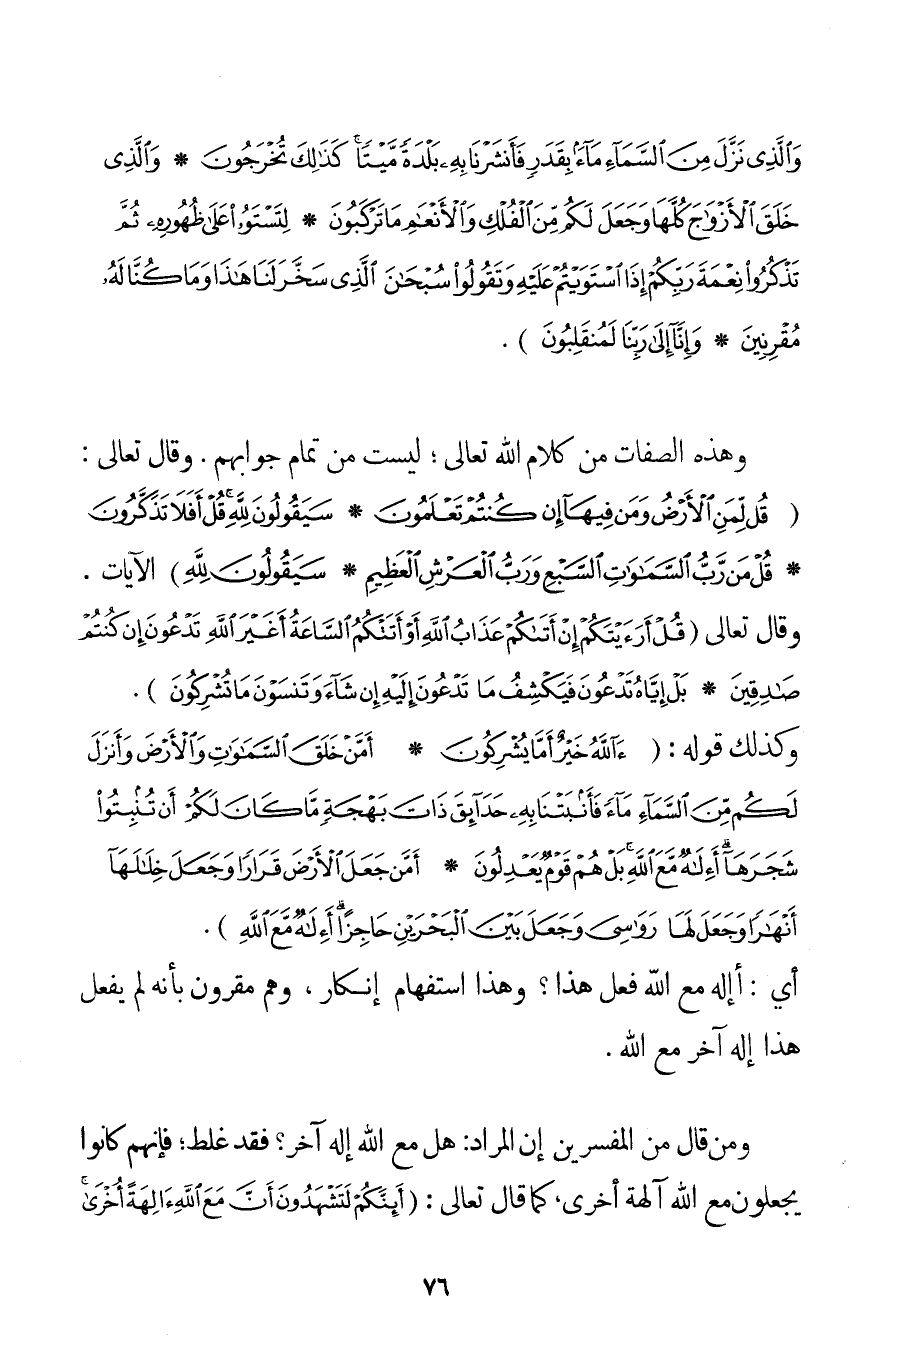 وَٱلَّذِى نَزَّلَ مِنَ ٱلسَّمَآءِ مَآءًۢ بِقَدَرٍ فَأَنشَرْنَا بِهِۦ بَلْدَةً مَّيْتًا ۚ كَذَٰلِكَ تُخْرَجُونَ * وَٱلَّذِى
خَلَقَ ٱلْأَزْوَٰجَ كُلَّهَا وَجَعَلَ لَكُم مِّنَ ٱلْفُلْكِ وَٱلْأَنْعَٰمِ مَا تَرْكَبُونَ * لِتَسْتَوُۥا۟ عَلَىٰ ظُهُورِهِۦ ثُمَّ
تَذْكُرُوا۟ نِعْمَةَ رَبِّكُمْ إِذَا ٱسْتَوَيْتُمْ عَلَيْهِ وَتَقُولُوا۟ سُبْحَٰنَ ٱلَّذِى سَخَّرَ لَنَا هَٰذَا وَمَا كُنَّا لَهُۥ
مُقْرِنِينَ * وَإِنَّآ إِلَىٰ رَبِّنَا لَمُنقَلِبُونَ ) .
وهذه الصفات من كلام الله تعالى ؛ ليست من تمام جوابهم . وقال تعالى :
( قُل لِّمَنِ ٱلْأَرْضُ وَمَن فِيهَآ إِن كُنتُمْ تَعْلَمُونَ * سَيَقُولُونَ لِلَّهِ ۚ قُلْ أَفَلَا تَذَكَّرُونَ
* قُلْ مَن رَّبُّ ٱلسَّمَٰوَٰتِ ٱلسَّبْعِ وَرَبُّ ٱلْعَرْشِ ٱلْعَظِيمِ * سَيَقُولُونَ لِلَّهِ ) الآيات .
وقال تعالى ( قُلْ أَرَءَيْتَكُمْ إِنْ أَتَىٰكُمْ عَذَابُ ٱللَّهِ أَوْ أَتَتْكُمُ ٱلسَّاعَةُ أَغَيْرَ ٱللَّهِ تَدْعُونَ إِن كُنتُمْ
صَٰدِقِينَ * بَلْ إِيَّاهُ تَدْعُونَ فَيَكْشِفُ مَا تَدْعُونَ إِلَيْهِ إِن شَآءَ وَتَنسَوْنَ مَا تُشْرِكُونَ ) .
وكذلك قوله : ( ءَآللَّهُ خَيْرٌ أَمَّا يُشْرِكُونَ * أَمَّنْ خَلَقَ ٱلسَّمَٰوَٰتِ وَٱلْأَرْضَ وَأَنزَلَ
لَكُم مِّنَ ٱلسَّمَآءِ مَآءً فَأَنۢبَتْنَا بِهِۦ حَدَآئِقَ ذَاتَ بَهْجَةٍ مَّا كَانَ لَكُمْ أَن تُنۢبِتُوا۟
شَجَرَهَآ ۗ أَءِلَٰهٌ مَّعَ ٱللَّهِ ۚ بَلْ هُمْ قَوْمٌ يَعْدِلُونَ * أَمَّن جَعَلَ ٱلْأَرْضَ قَرَارًا وَجَعَلَ خِلَٰلَهَآ
أَنْهَٰرًا وَجَعَلَ لَهَا رَوَٰسِىَ وَجَعَلَ بَيْنَ ٱلْبَحْرَيْنِ حَاجِزًا ۗ أَءِلَٰهٌ مَّعَ ٱللَّهِ ) .
أي : أإله مع الله فعل هذا ؟ وهذا استفهام إنكار ، وهم مقرون بأنه لم يفعل
هذا إله آخر مع الله .
ومن قال من المفسرين إن المراد: هل مع الله إله آخر؟ فقد غلط؛ فإنهم كانوا
يجعلون مع الله آلهة أخرى، كما قال تعالى : ( أَئِنَّكُمْ لَتَشْهَدُونَ أَنَّ مَعَ ٱللَّهِ ءَالِهَةً أُخْرَىٰ ۚ
٧٦